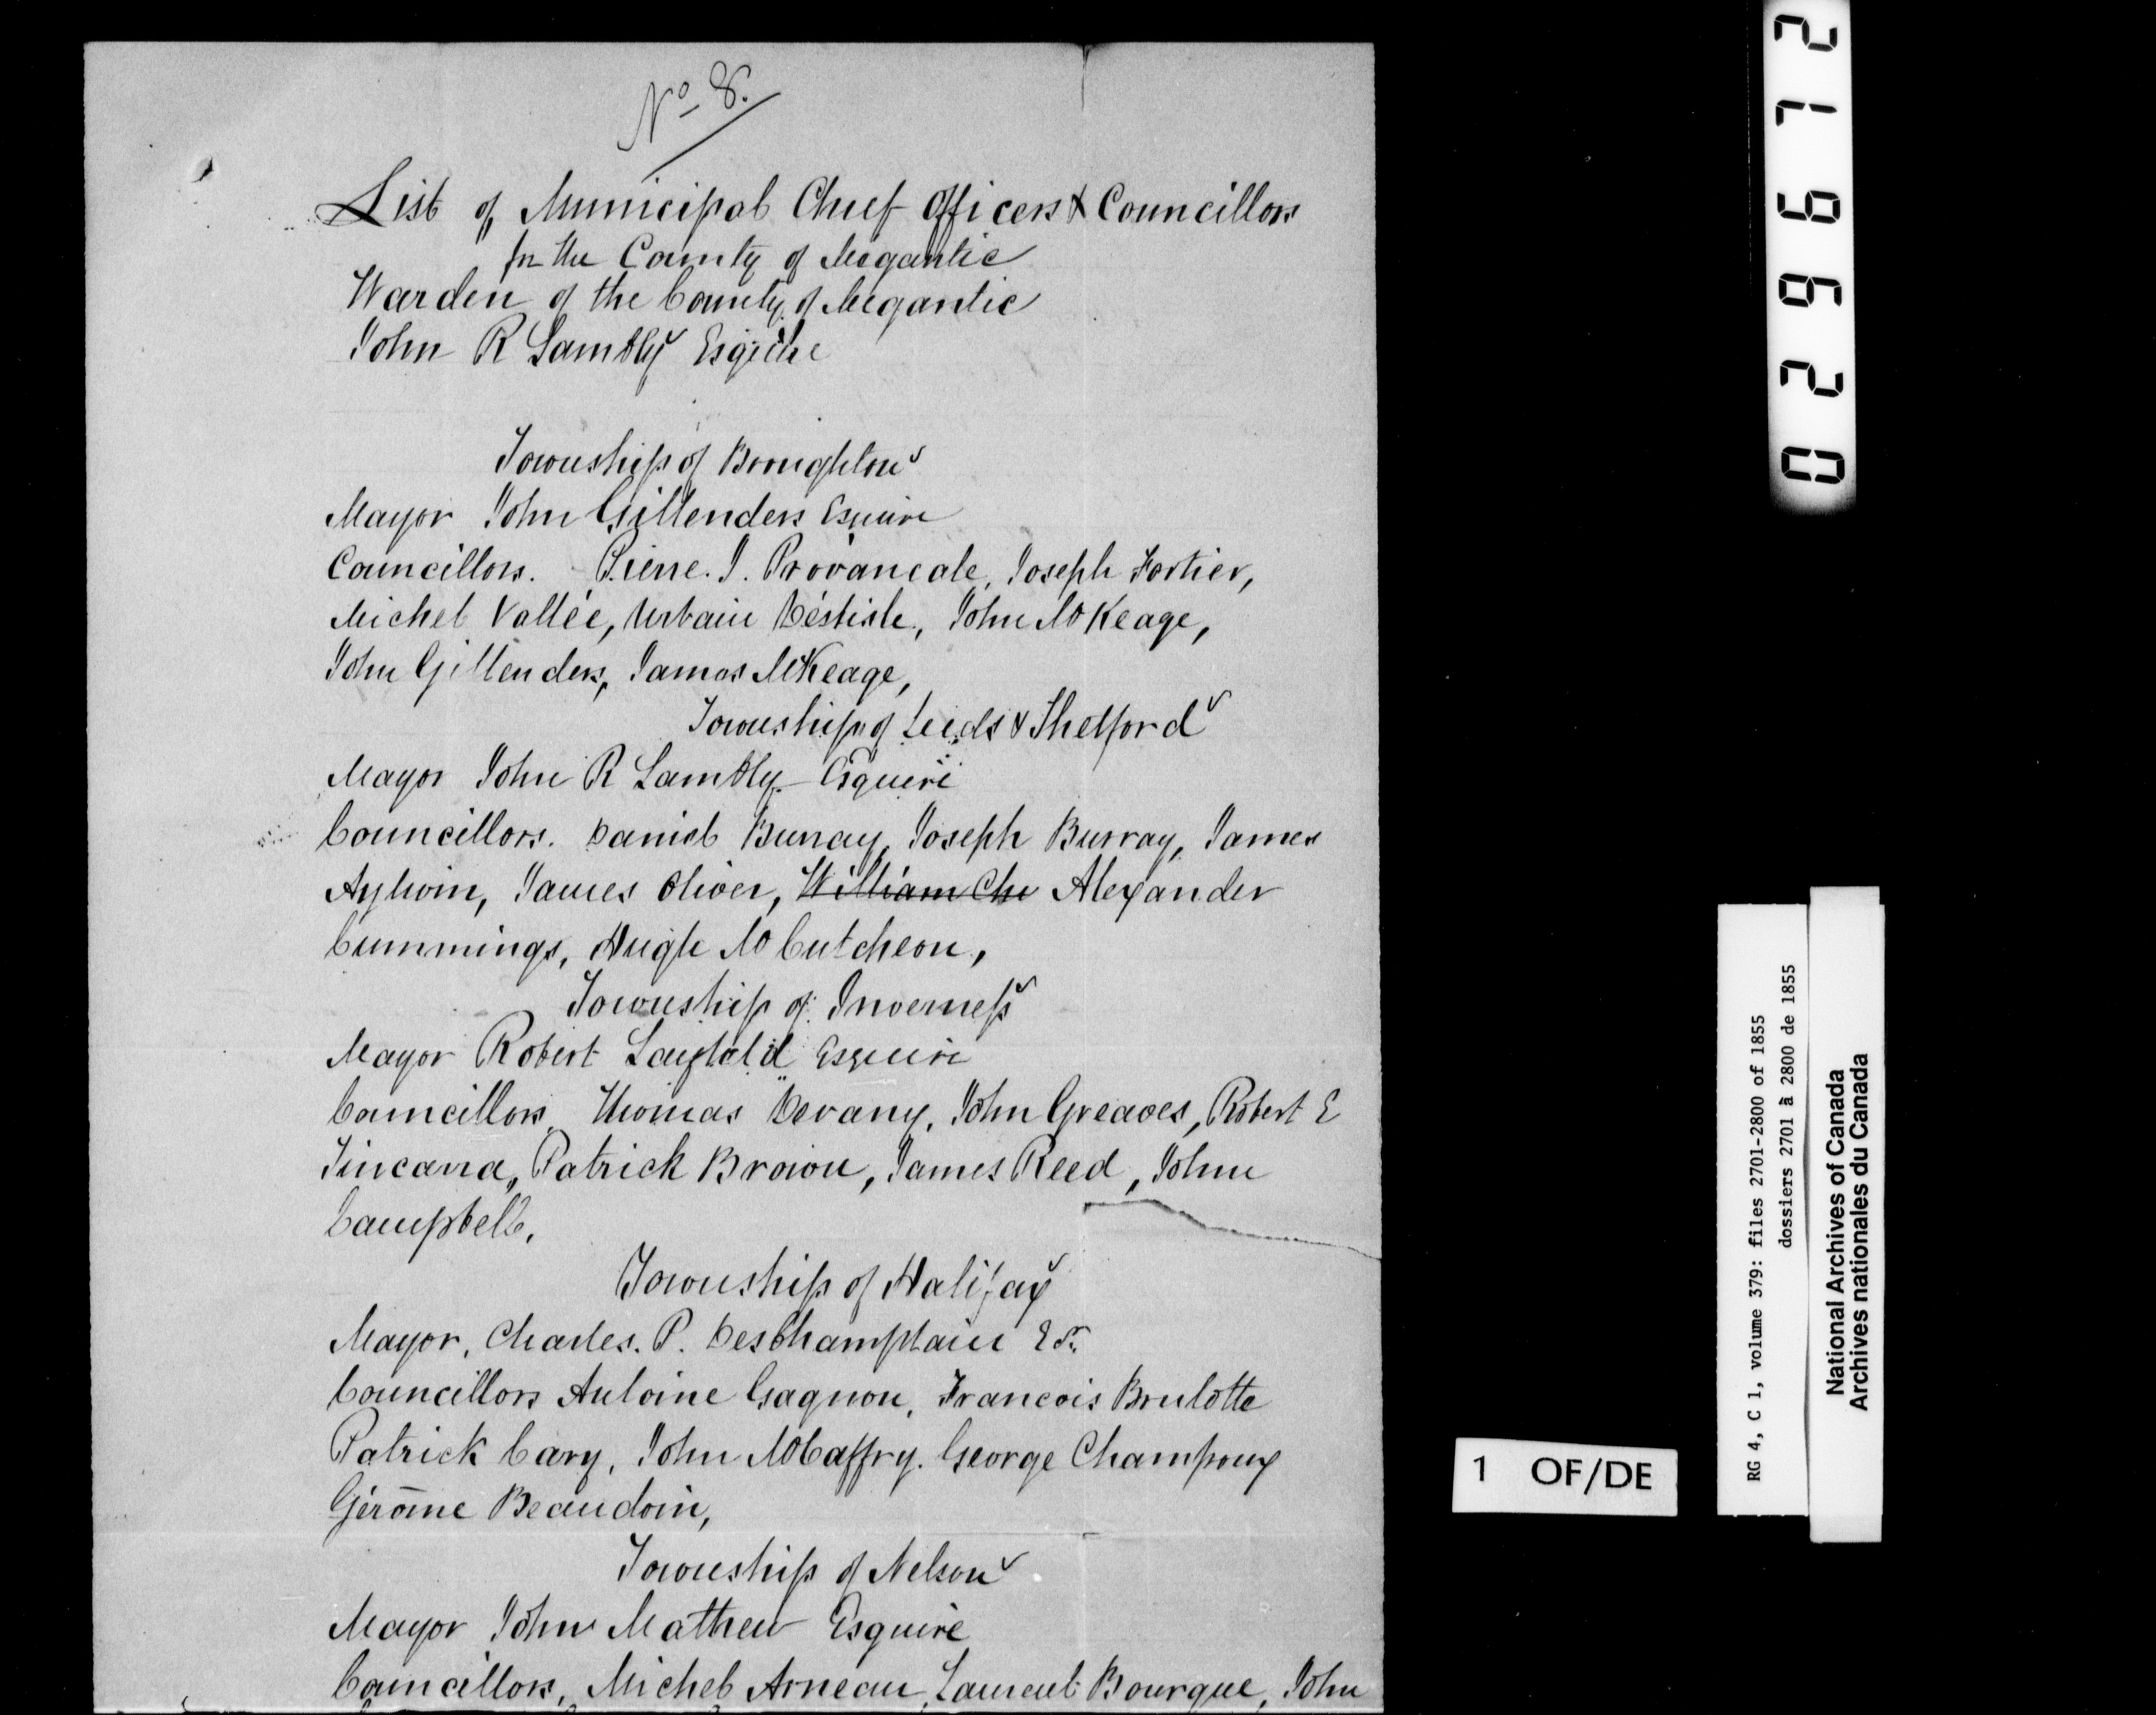 No 8.
List of Municipal Chief Officers & Councillors
for the County of Megantic
Warden of the County of Megantic
John R Lambly Esquire
Township of Broughton
Mayor John Gillenders Esquire
Councillors. Pierre. J. Provancale, Joseph Fortier,
Michel Vallée, Urbain John McKeage,
John Gillenders, James McKeage,
Township of Leeds & Thetford
Mayor John R Lambly Esquire
Councillors. Daniel Burray, Joseph Burray, James
Aylwin, James Oliver, William Che Alexander
Cummings, Hugh McCutcheon,
Township of Inverness
Mayor Robert Layfield Esquire
Councillors, Thomas Devany, John Greaves, Robert E
Patrick Brown, James Reed, John
Campbell,
Township of Halifax
Mayor, Charles. P. DesChamplain Esr.
Councillors Antoine Gagnon, Francois Brulotte
Patrick Cary, John McCaffry. George Champoux
Gérome Beaudoin,
Township of Nelson
Mayor John Mathew Esquire
Councillors, Michel Arneau, Laurent Bourque, John
029672
1 OF/DE
RG 4, C 1, volume 379: files 2701-2800 of 1855
dossiers 2701 à 2800 de 1855
National Archives of Canada
Archives nationales du Canada